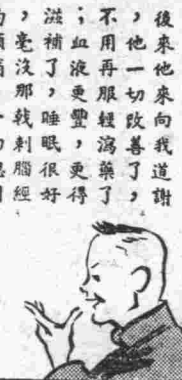 後來他來向我道謝
，他一切改善了，
不用再服輕瀉藥了
；血液更豐，更得
滋補了，睡眠很好
，毫沒那戟刺腦經